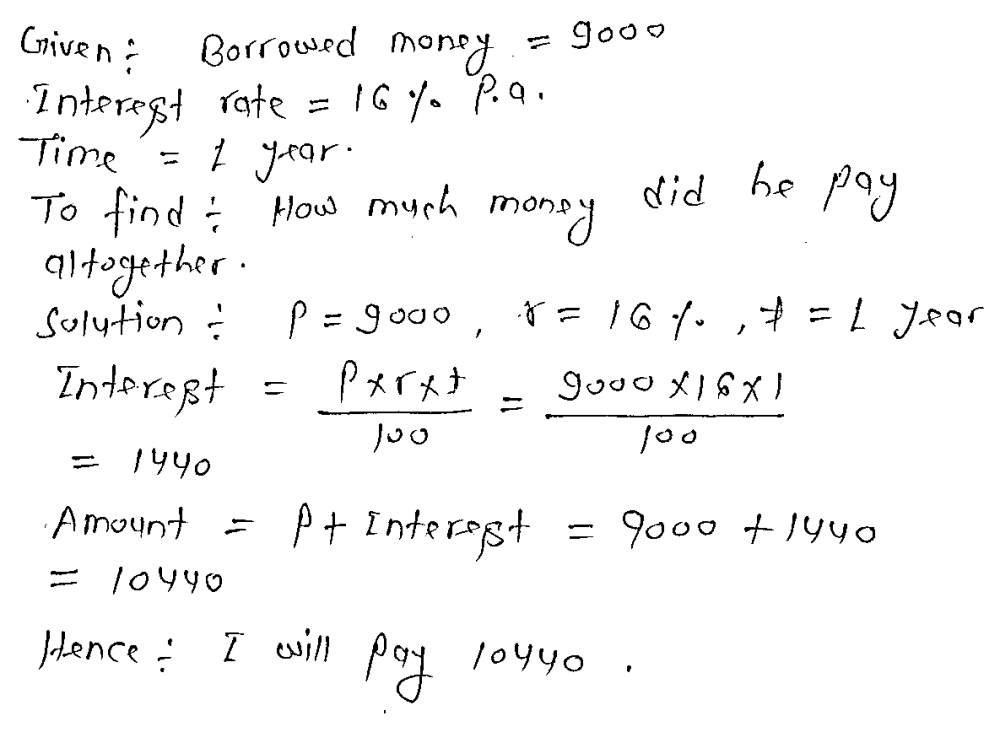 Given ÷ Borrowed money = 9000
Interest rate = 16 % P.a.
Time = 1 year.
To find ÷ How much money did he pay
altogether.
Solution ÷ P = 9000, r = 16 %, t = 1 year
Interest = P×r×t / 100 = 9000 ×16×1 / 100
= 1440
Amount = P + Interest = 9000 + 1440
= 10440
Hence ÷ I will pay 10440.